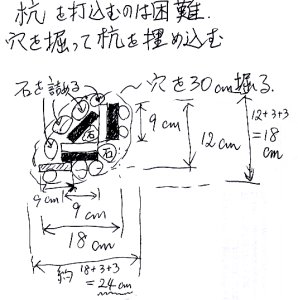 杭を打込むのは困難.
穴を掘って杭を埋め込む
石を詰める
〜穴を30cm掘る.
石
石
9cm
12cm
12+3+3
=18
cm
9cm
9cm
18cm
約 18+3+3
=24cm